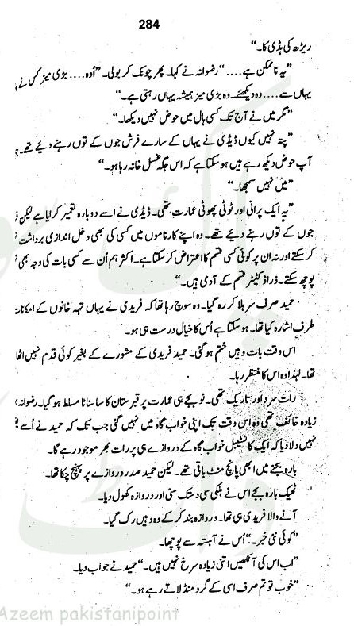 284
ریڑھ کی ہڈی کا۔"
"یہ ناممکن ہے...." رضوانہ نے کہا۔ پھر چونک کر بولی۔ "اوہ.... بڑی میز کس نے
یہاں سے.... وہ دیکھئے.... وہ بڑی میز ہمیشہ یہاں رہتی ہے۔"
"مگر میں نے آج تک کسی ہال میں حوض نہیں دیکھا۔"
"پتہ نہیں کیوں ڈیڈی نے یہاں کے سارے فرش جوں کے توں رہنے دیئے تھے۔
آپ حوض دیکھ رہے ہیں ہوسکتا ہے کہ اس جگہ غسل خانہ رہا ہو۔"
"میں نہیں سمجھا۔"
"یہ ایک پرانی اور ٹوٹی پھوٹی عمارت تھی۔ ڈیڈی نے اسے دوبارہ تعمیر کرایا ہے لیکن
جوں کے توں رہنے دیئے تھے۔ وہ اپنے کارناموں میں کسی کی بھی دخل اندازی برداشت
کرسکتے اور نہ ان پر کوئی کسی قسم کا اعتراض کرسکتا ہے۔ اکثر ہم اُن سے کسی بات کی وجہ بھی
پوچھ سکتے۔ ذرا ڈکٹیٹر قسم کے آدمی ہیں۔"
حمید صرف سر ہلا کر رہ گیا۔ وہ سوچ رہا تھا کہ فریدی نے یہاں تہہ خانوں کے امکانات
طرف اشارہ کیا تھا۔ ہوسکتا ہے اُس کا خیال درست ہی ہو۔
اس وقت بات وہیں ختم ہوگئی۔ حمید فریدی کے مشورے کے بغیر کوئی قدم نہیں اٹھا
تھا۔ لہٰذا وہ اس کا منتظر رہا۔
رات سرد اور تاریک تھی۔ نو بجے ہی عمارت پر قبرستان کا سا سناٹا مسلط ہوگیا۔ رضوانہ
زیادہ خائف تھی وہ اس وقت تک اپنی خواب گاہ میں نہیں گئی جب تک کہ حمید نے اُسے
نہیں دلا دیا کہ ایک کانسٹیبل خواب گاہ کے دروازے ہی پر رات بھر موجود رہے گا۔
بارہ بجنے میں ابھی پانچ منٹ باقی تھے۔ لیکن حمید صدر دروازے پر پہنچ چکا تھا۔
ٹھیک بارہ بجے اس نے ہلکی سی دستک سنی اور دروازہ کھول دیا۔
آنے والا فریدی ہی تھا۔ دروازہ بند کرکے وہ وہیں رک گیا۔
"کوئی نئی خبر۔" اُس نے آہستہ سے پوچھا۔
"اب اس کی آنکھیں اتنی زیادہ سرخ نہیں ہیں۔" حمید نے جواب دیا۔
"خوب تو تم صرف اسی کے گرد منڈلاتے رہے ہو۔"
Azeem pakistanipoint